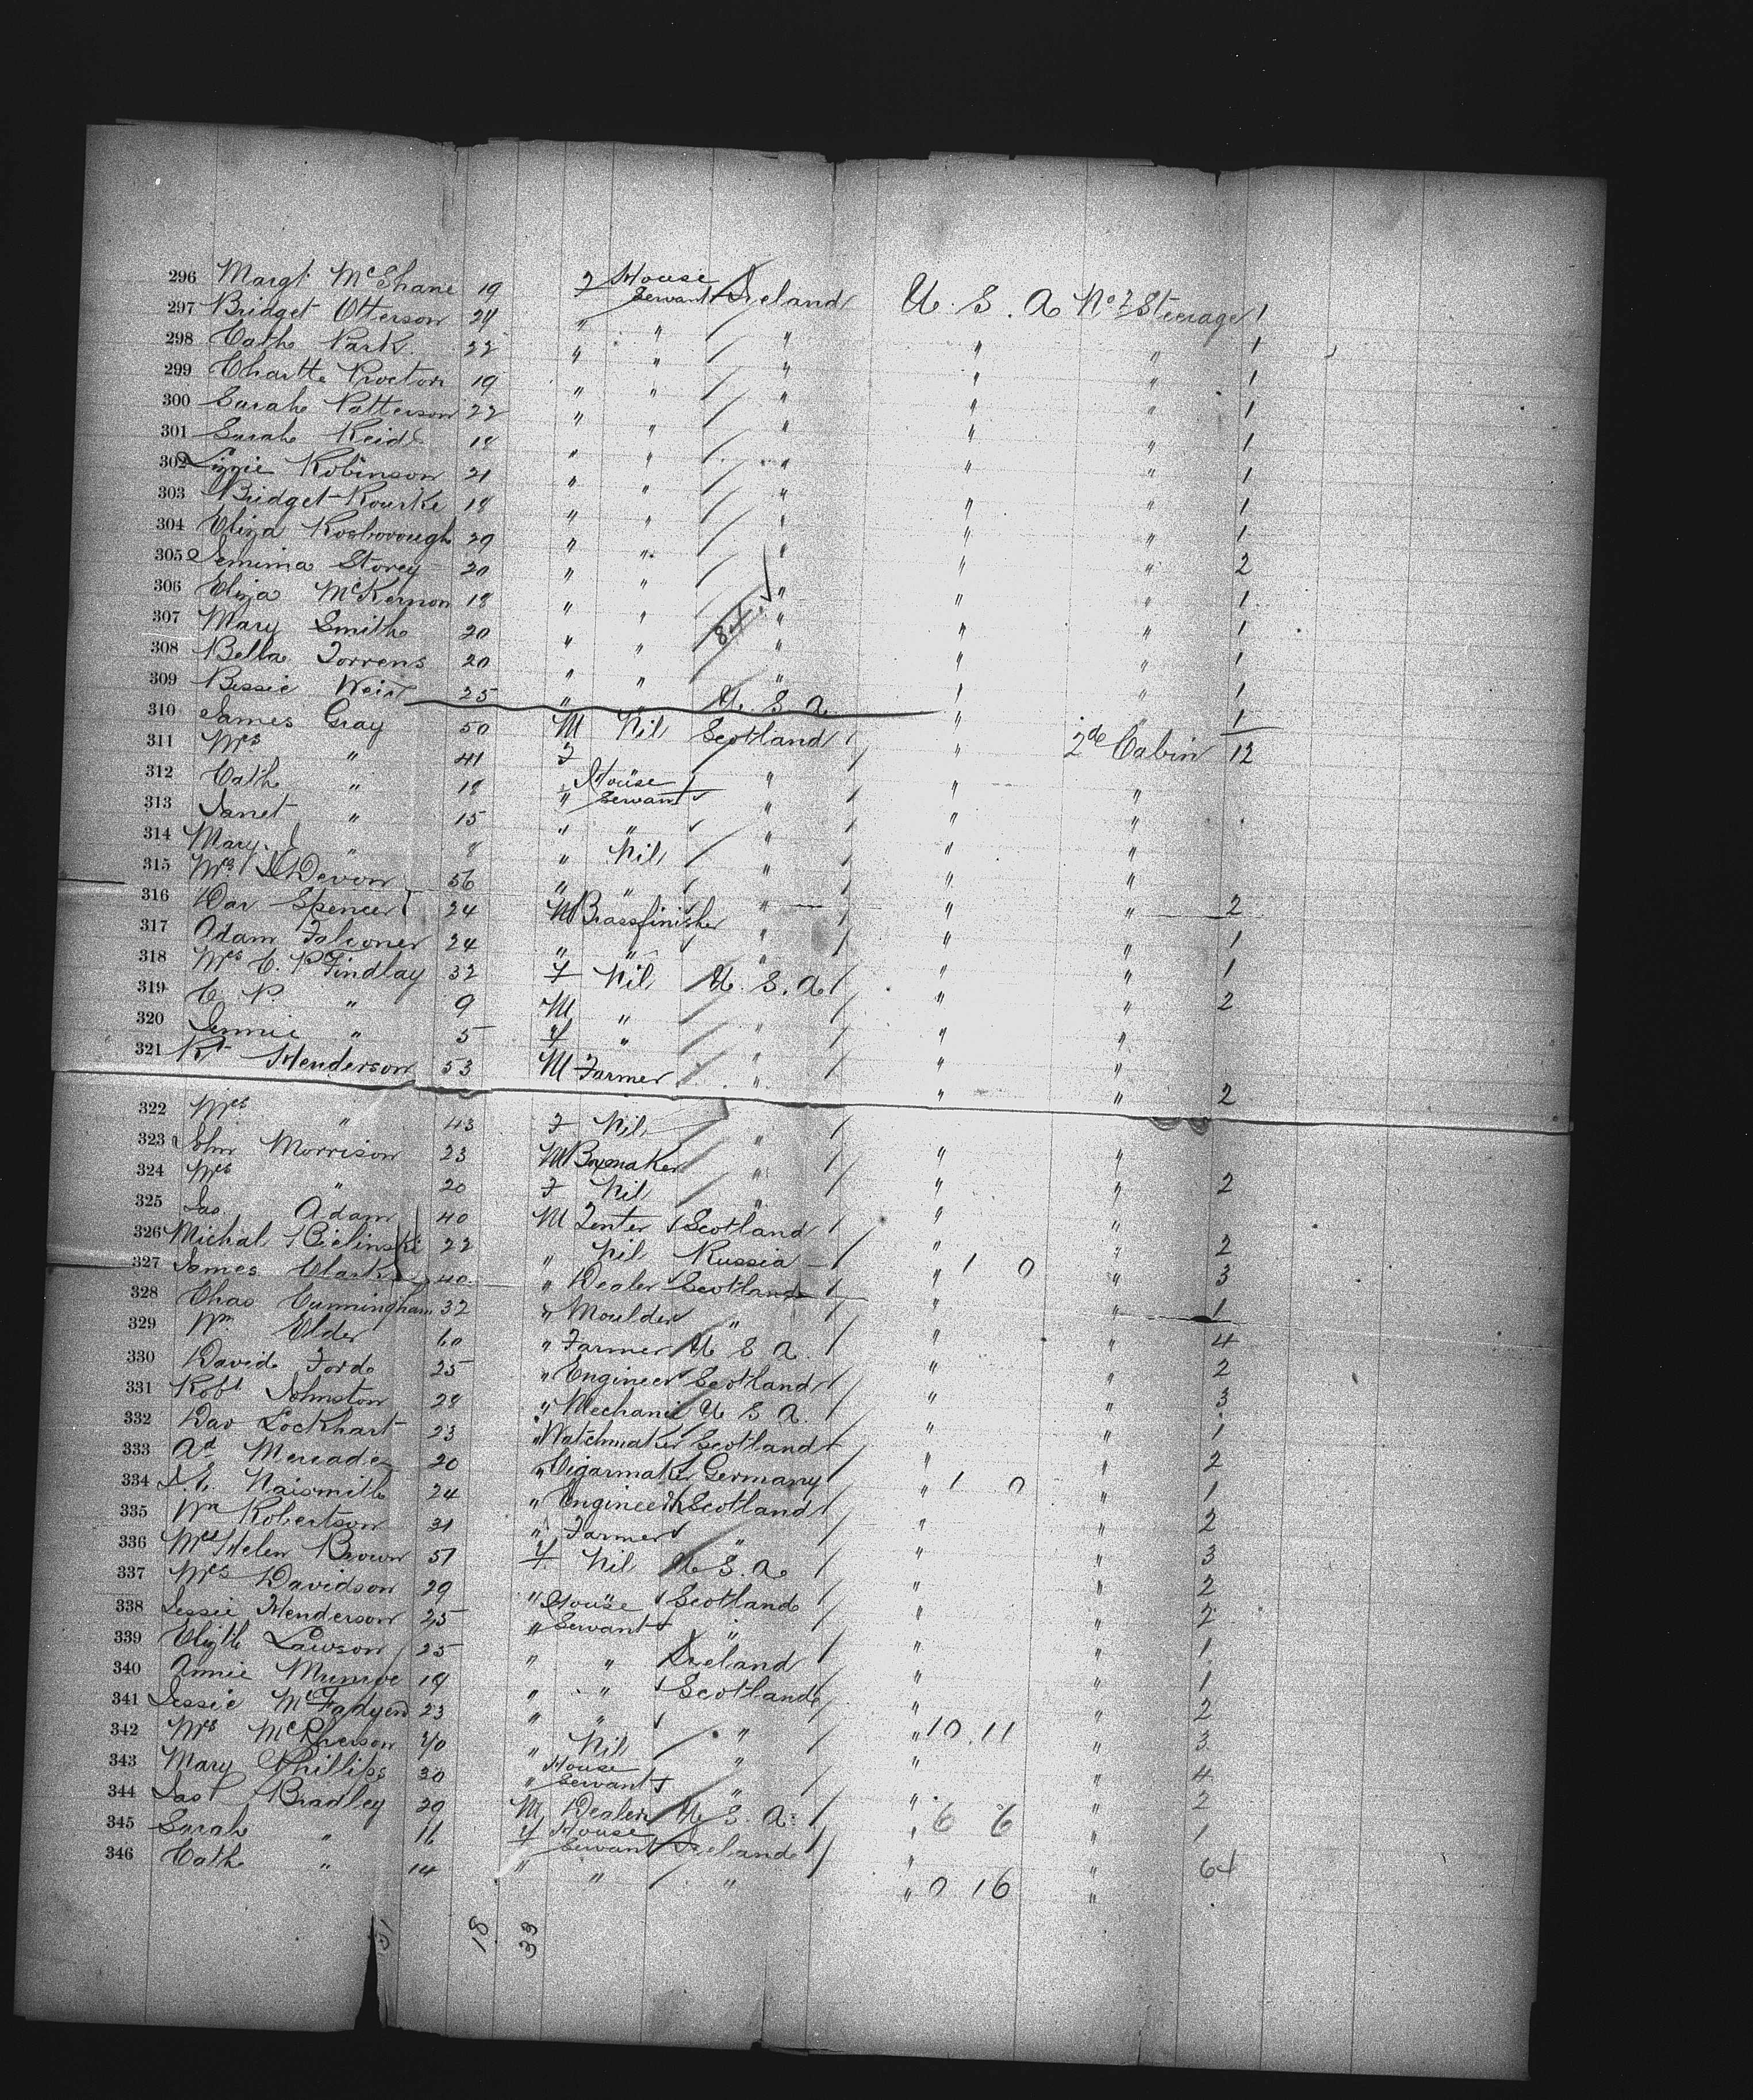 296 Margt McShane 19 F House Servant Ireland U. S. A No 2 Steerage 1
297 Bridget Otterson 24 " " " " " 1
298 Cathe Park 22 " " " " " 1
299 Chartte Procton 19 " " " " " 1
300 Sarah Patterson 22 " " " " " 1
301 Sarah Reid 18 " " " " " 1
302 Lizzie Robinson 21 " " " " " 1
303 Bridget Rourke 18 " " " " " 1
304 Eliza Rosborough 29 " " " " " 2
305 Jemima Storey 20 " " " " " 1
306 Eliza McKernon 18 " " " " " 1
307 Mary Smith 20 " " " " " 1
308 Bella Torrens 20 " " " " " 1
309 Bessie Weir 25 " " U. S. A " " 1
310 James Gray 50 M Nil Scotland " 2d Cabin 12
311 Mrs " 41 F " " "
312 Cath " 18 " House Servant " " "
313 Janet " 15 " " " " "
314 Mary J " 8 " Nil " " "
315 Mrs Devon 56 " " " " " 2
316 Dav Spencer 24 M Brassfinisher " " " 1
317 Adam Falconer 24 " " " " " 1
318 Mrs C. P. Findlay 32 F Nil U. S. A " " 2
319 C. P. " 9 M " " " "
320 Jennie " 5 F " " " "
321 Rt Henderson 53 M Farmer " " " 2
322 Mrs " 43 F Nil " " "
323 John Morrison 23 M Boxmaker " " " 2
324 Mrs " 20 F Nil " " "
325 Jas. Adam 40 M Tenter Scotland " " 2
326 Michal Bielinski 22 " Nil Russia " 1 0 " 3
327 James Clark 40 " Dealer Scotland " " 1
328 Chas Cunningham 32 " Moulder " " " 4
329 Wm Elder 60 " Farmer U S A. " " 2
330 David Ford 25 " Engineer Scotland " " 3
331 Robt Johnston 28 " Mechanic U S A. " " 1
332 Dav Lockhart 23 " Watchmaker Scotland " " 2
333 Ad Mercade 20 " Cigarmaker Germany " 1 0 " 1
334 J. E. Naismith 24 " Engineer Scotland " " 2
335 Wm Robertson 31 " Farmer " " " 3
336 Mrs Helen Brown 51 F Nil U. S. A. " " 2
337 Mrs Davidson 29 " House Scotland " " 2
338 Jessie Henderson 25 " Servant " " " 1
339 Elizth Lawson 25 " " Ireland " " 1
340 Annie Munroe 19 " " Scotland " " 2
341 Jessie McFadyen 23 " " " " 10 11 " 3
342 Mrs McPherson 40 " Nil " " " 4
343 Mary Phillips 30 " House Servant " " " 2
344 Jas Bradley 29 M Dealer U. S. A. " 6 6 " 1
345 Sarah " 16 F House Servant Ireland " " 64
346 Cath " 14 " " " " 0 16 "
51 18 33
84